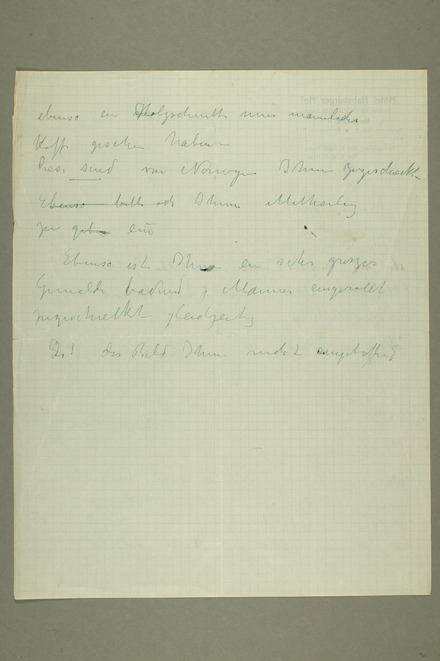 ebenso en Holzschnitt eines männlichen
Kopfs gesehen haben
Diese sind von Norwegen Ihnen zugeschickt
Ebenso bitte ich Ihnen Mittheilung
zu geben
Ebenso ist Ihnen en sehr grosses
Gemälde badende Männer eingerollt
zugeschickt gleichzeitig
Ist das Bild Ihnen nicht